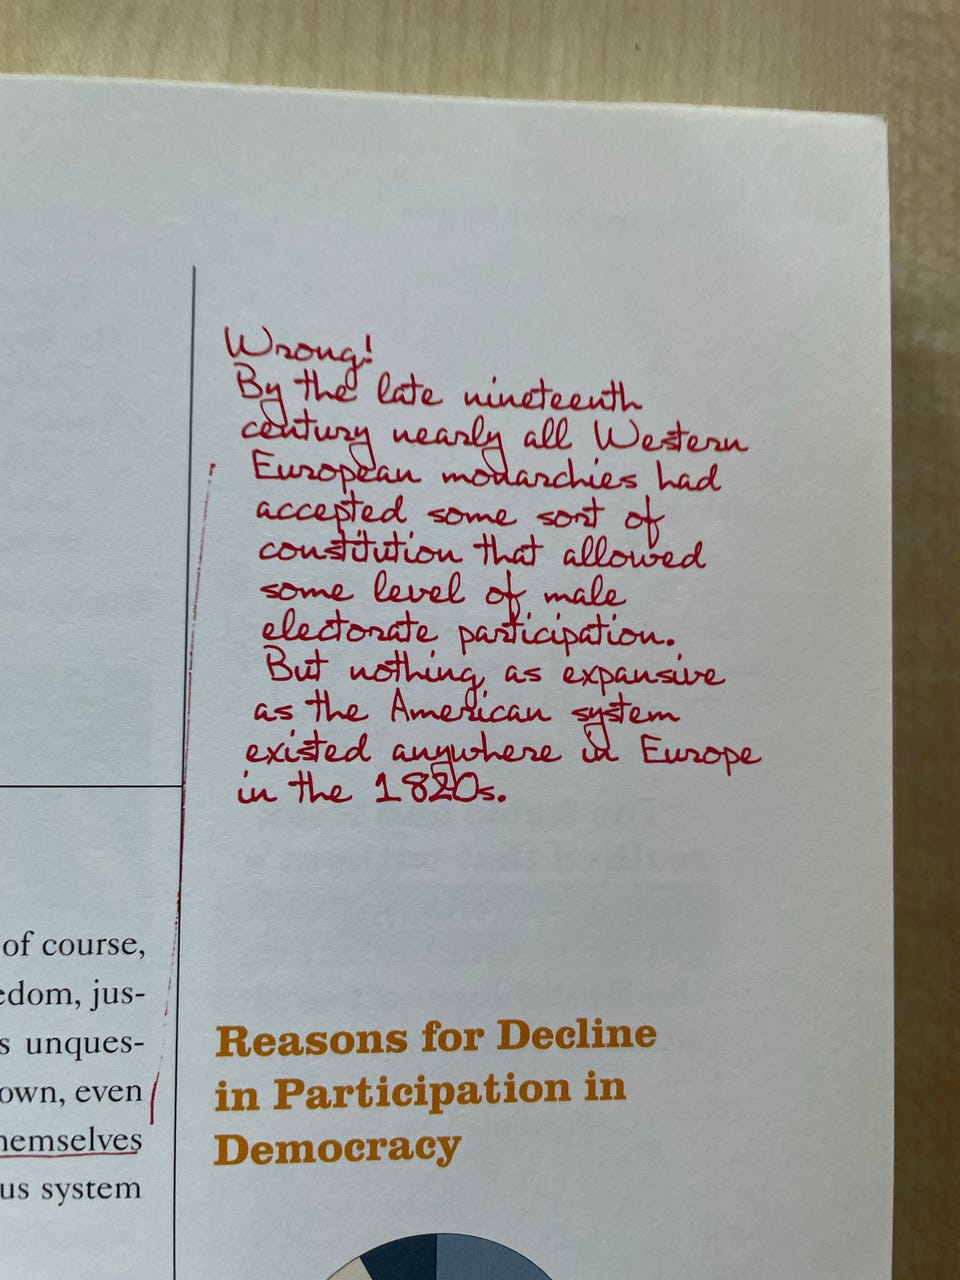 Wrong!
By the late nineteenth
century nearly all Western
European monarchies had
accepted some sort of
constitution that allowed
some level of male
electorate participation.
But nothing as expansive
as the American system
existed anywhere in Europe
in the 1820s.
of course,
edom, jus-
s unques-
own, even
hemselves
us system
Reasons for Decline
in Participation in
Democracy